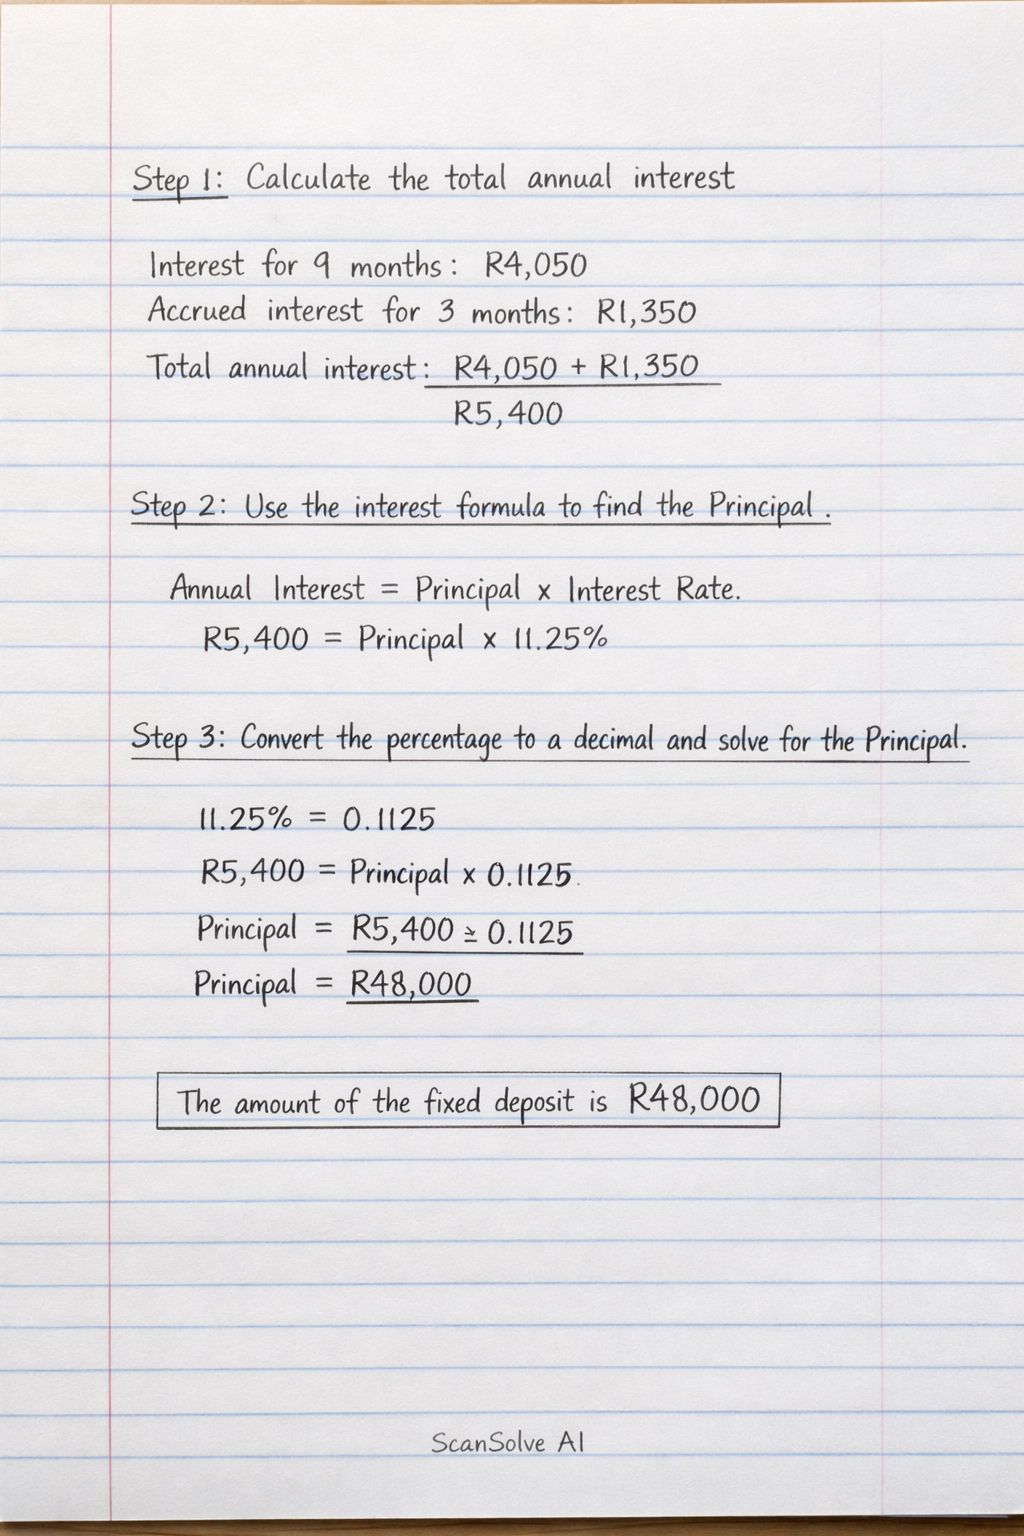 Step 1: Calculate the total annual interest
Interest for 9 months: R4,050
Accrued interest for 3 months: R1,350
Total annual interest: R4,050 + R1,350
R5,400
Step 2: Use the interest formula to find the Principal.
Annual Interest = Principal x Interest Rate.
R5,400 = Principal x 11.25%
Step 3: Convert the percentage to a decimal and solve for the Principal.
11.25% = 0.1125
R5,400 = Principal x 0.1125.
Principal = R5,400 ≥ 0.1125
Principal = R48,000
The amount of the fixed deposit is R48,000
ScanSolve AI